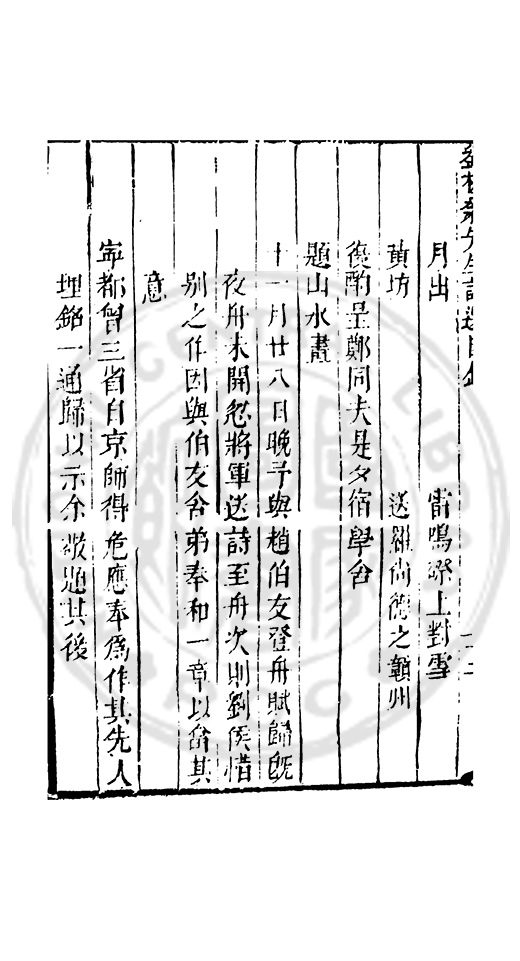 月出　雷鳴際上對雪
黃坊　送羅尚德之贛州
復酌呈鄭同夫是夕宿學舍
題山水畫
十一月廿八日晚予與趙伯友登舟賦歸旣
夜舟未開忽將軍送詩至舟次則劉侯惜
别之作因與伯友舍弟奉和一章以畣其
意
寧都曾三省自京師得危應奉爲作其先人
埋銘一通歸以示余敬題其後